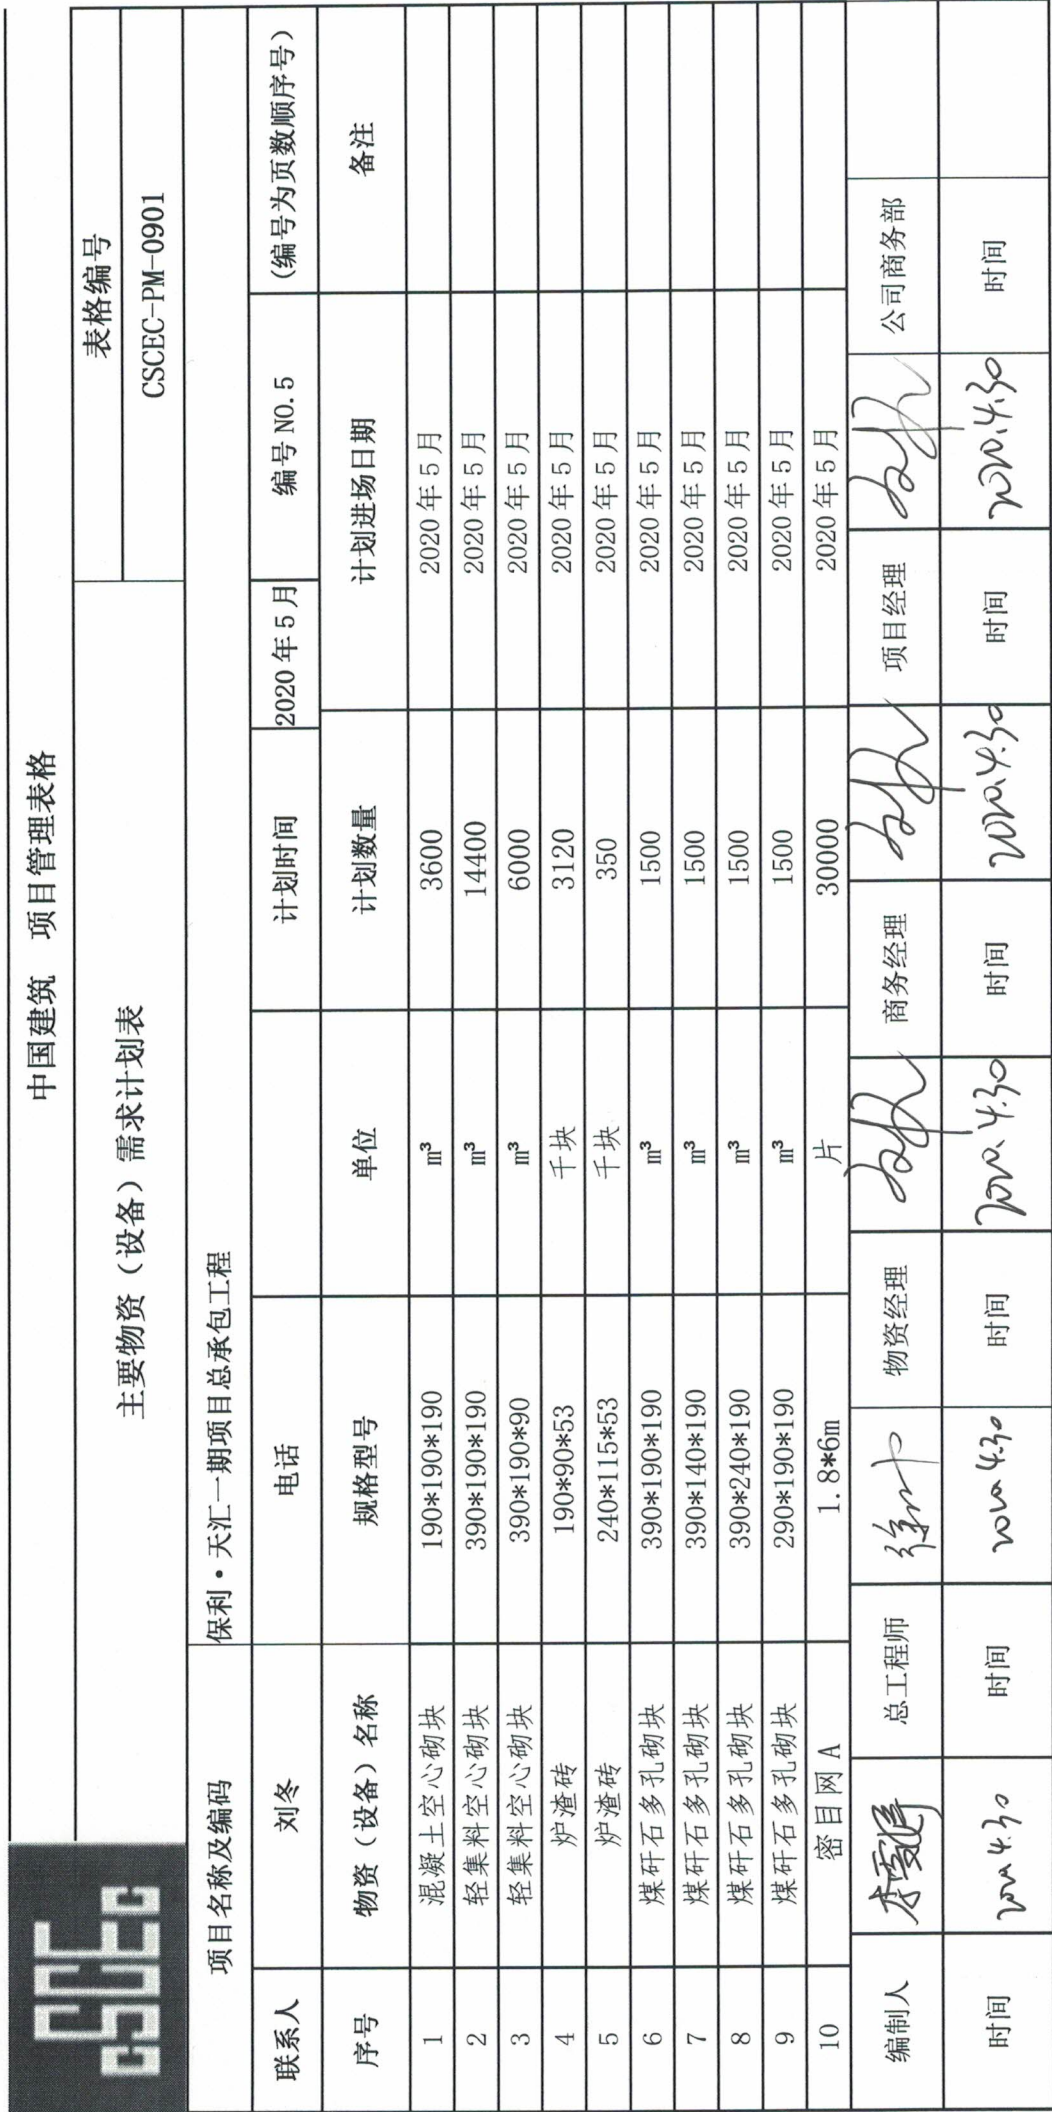 CSCEC
中国建筑 项目管理表格
主要物资（设备）需求计划表 表格编号
CSCEC-PM-0901
项目名称及编码 保利·天汇一期项目总承包工程
联系人 刘冬 电话 计划时间 2020年5月 编号 NO.5 (编号为页数顺序号)
序号 物资（设备）名称 规格型号 单位 计划数量 计划进场日期 备注
1 混凝土空心砌块 190*190*190 m³ 3600 2020年5月
2 轻集料空心砌块 390*190*190 m³ 14400 2020年5月
3 轻集料空心砌块 390*190*90 m³ 6000 2020年5月
4 炉渣砖 190*90*53 千块 3120 2020年5月
5 炉渣砖 240*115*53 千块 350 2020年5月
6 煤矸石多孔砌块 390*190*190 m³ 1500 2020年5月
7 煤矸石多孔砌块 390*140*190 m³ 1500 2020年5月
8 煤矸石多孔砌块 390*240*190 m³ 1500 2020年5月
9 煤矸石多孔砌块 290*190*190 m³ 1500 2020年5月
10 密目网A 1.8*6m 片 30000 2020年5月
编制人 总工程师 物资经理 商务经理 项目经理 公司商务部
时间 2020.4.30 时间 2020.4.30 时间 2020.4.30 时间 2020.4.30 时间 2020.4.30 时间